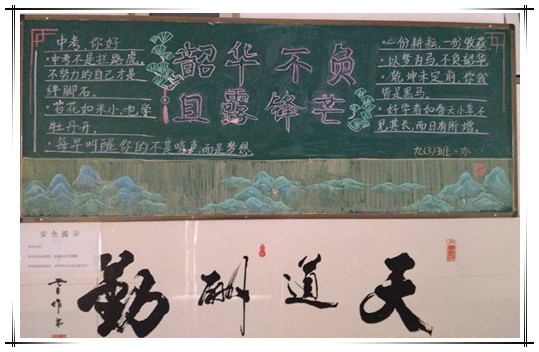 中考,你好
·中考不是拦路虎,
不努力的自己才是
绊脚石.
·苔花如米小,也学
牡丹开.
·每早叫醒你的不是闹声,而是梦想.
韶华不负
且露锋芒
·一份耕耘,一份收获
·以梦为马,不负韶华
·乾坤未定前,你我
皆是黑马.
·好学者如春天小草不
见其长,而日有所增.
九(3)班·办
安全提示
天道酬勤